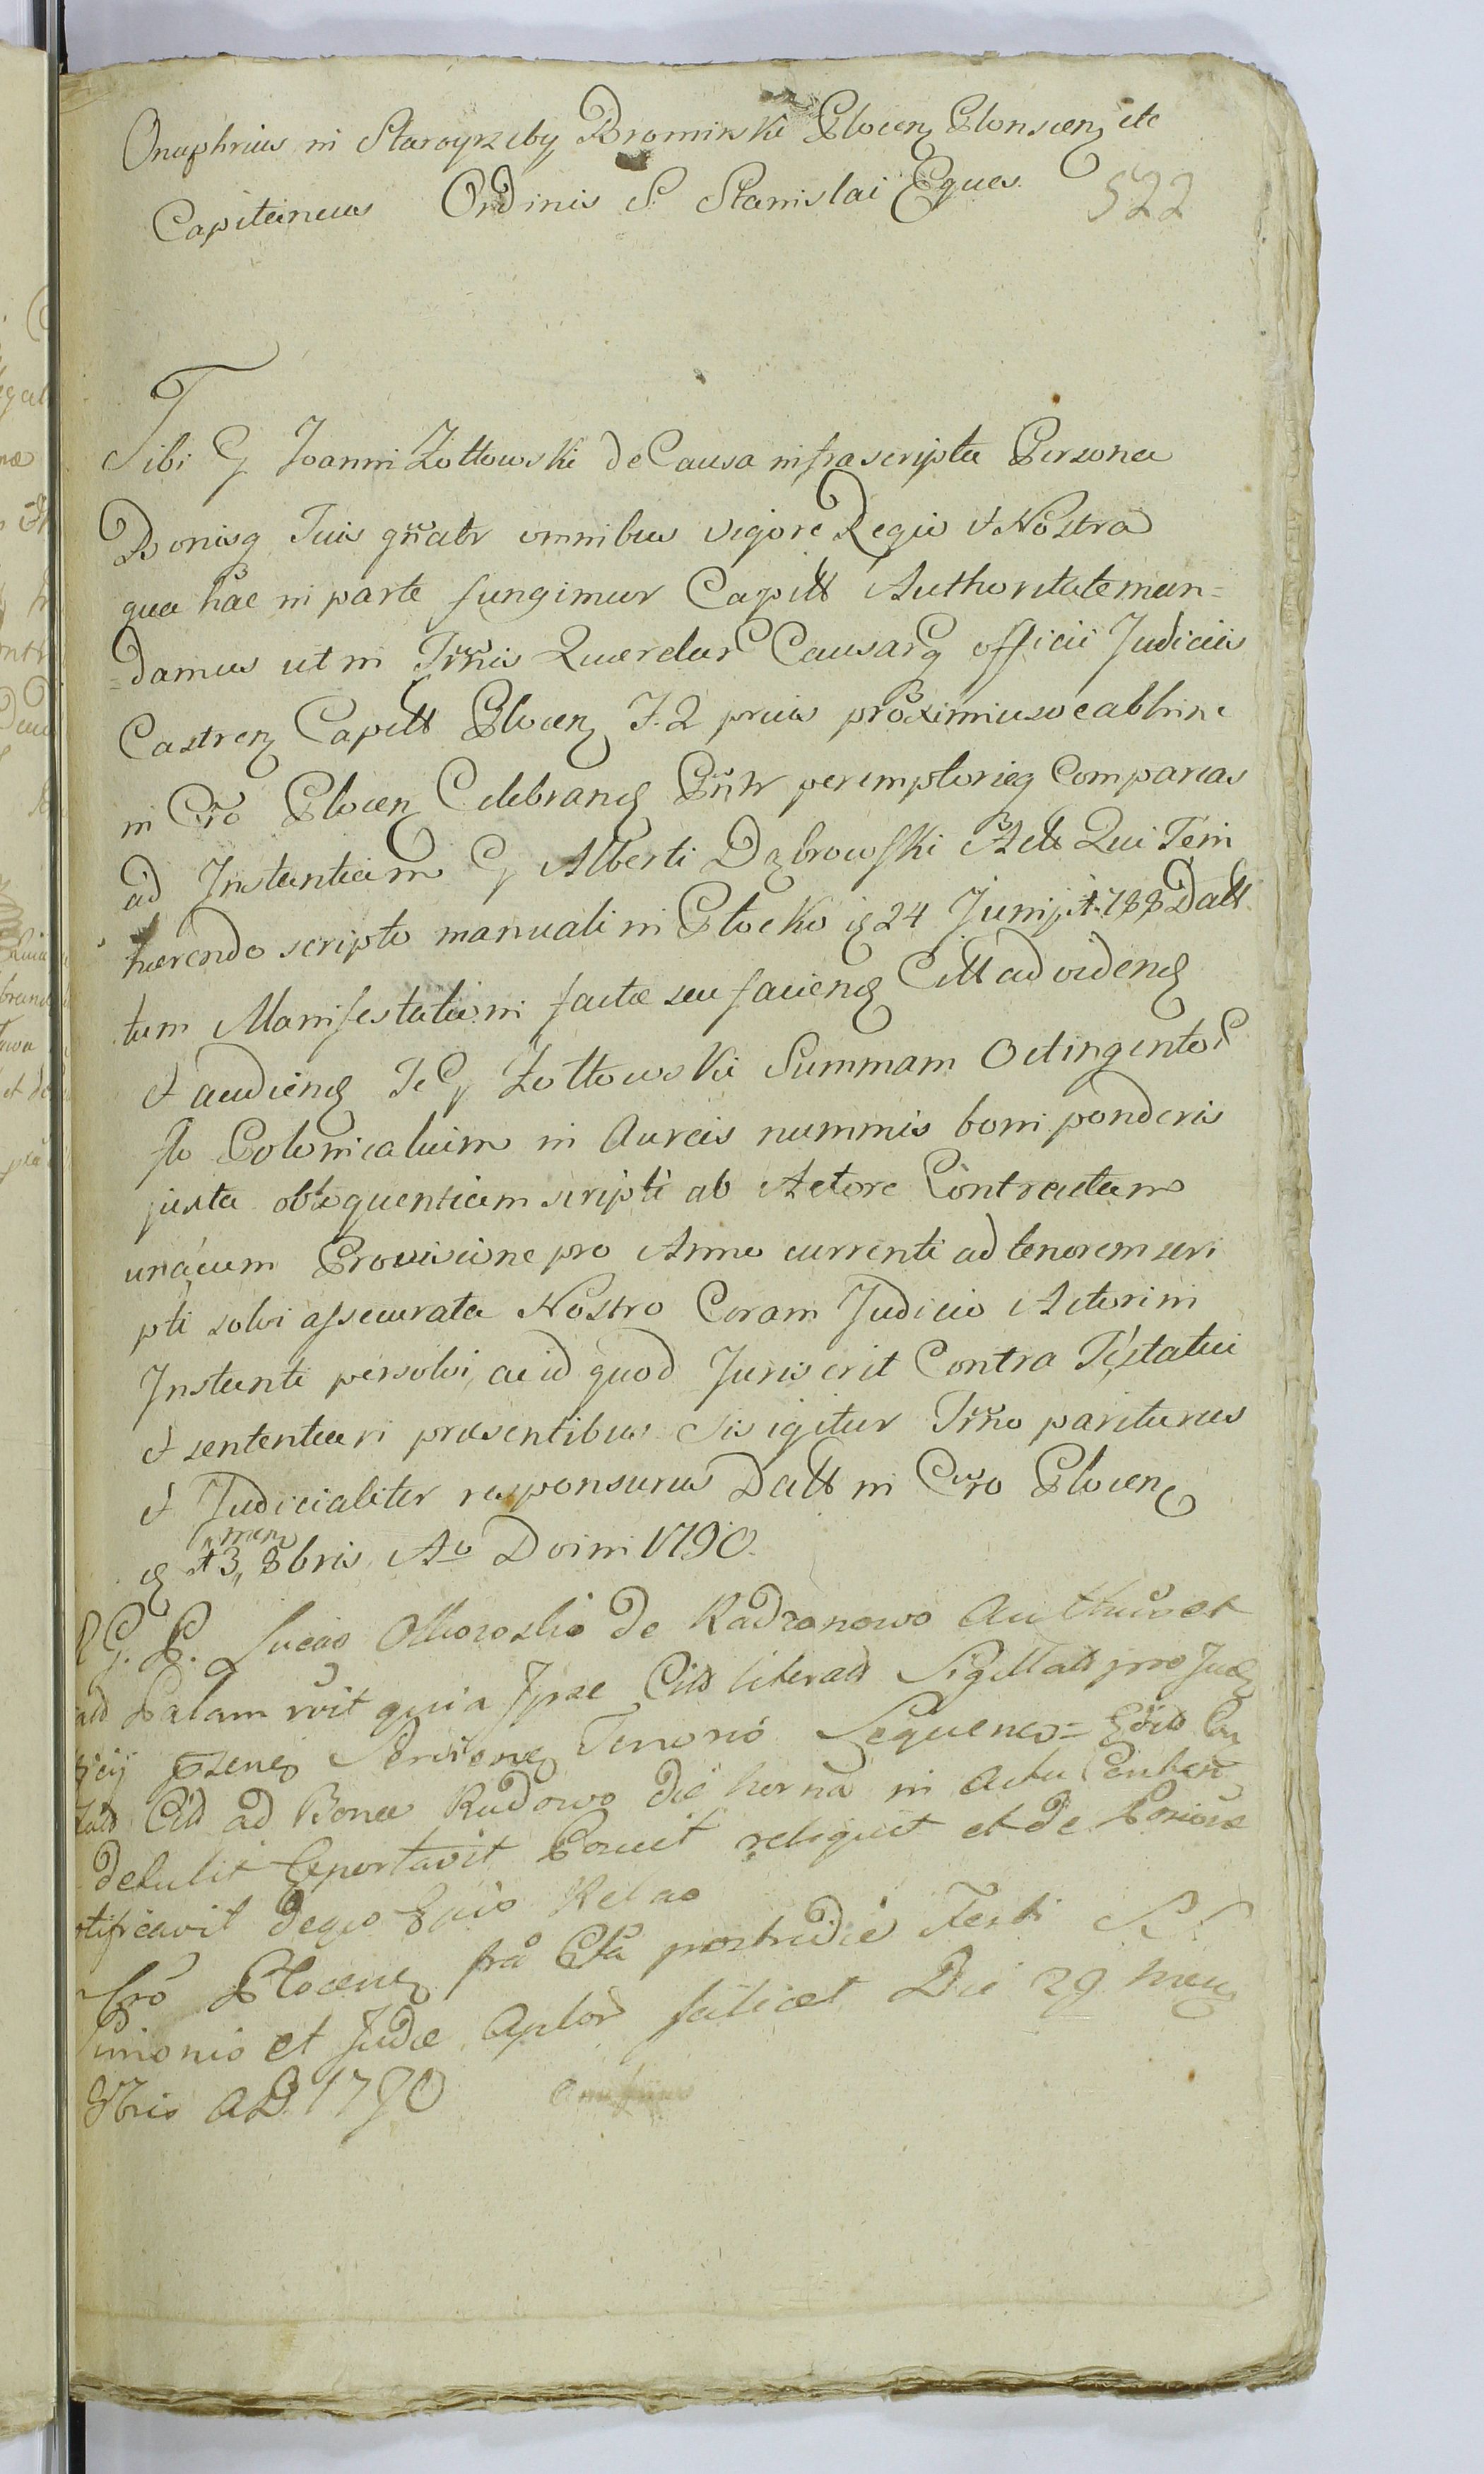 Onuphrius in Starogrzeby Bromirski Plocen Plonscen etc
Capitaneus Ordinis S. Stanislai Eques
522
Tibi G Joanni Zołtowski de Causa infrascripta Persona
Bonisq Tuis gñaltr omnibus vigore Regio & Nostra
qua hâc in parte fungimur Capitt Authoritate man=
=damus ut in Trñis Querelar Causarq officii Judiciis
Castren Capitt Plocen F. 2 prius proximiusve abhinc
in Cro Plocen Celebrand Pntr peremptorieq Compareas
ad Instantiam G Alberti Dąbrowski Act Qui Te in
hærendo scripto manuali in Płocko d 24 Junij 1788 Datt
tum Manifestationi factæ seu faciend Citt ad vidend
& audiend Te G Zołtowski Summam Octingentos
flo Polonicalium in Aureis nummis boni ponderis
juxta obloquentiam scripti ab Actore Contractam
unácum Provisione pro Anno currenti ad tenorem scri
pti solvi assecurata Nostro Coram Judicio Actori in
Instanti persolvi, ac id quod Juris erit Contra Te statui
& sententiari præsentibus sis igitur Trño pariturus
& Judicialiter responsurus Datt in Cro Plocen
d 13 mens 8bris Aº Domini 1790.
R G. P. Lucas de Radzanowo Authus et
Palam rvit quia Ipse Citt literatt Sigillatt pro Jud
Tenoris Sequens =
Citt ad Bona Rudowo die herna in actu
detulit Cportavit Posuit reliquit et de Posione
tificavit deqo Suis Relao
Cro Plocen fra Cta postridie Festi S S
Simonis et Judæ Aplor scilicet Die 29 mens
8bris AD. 1790